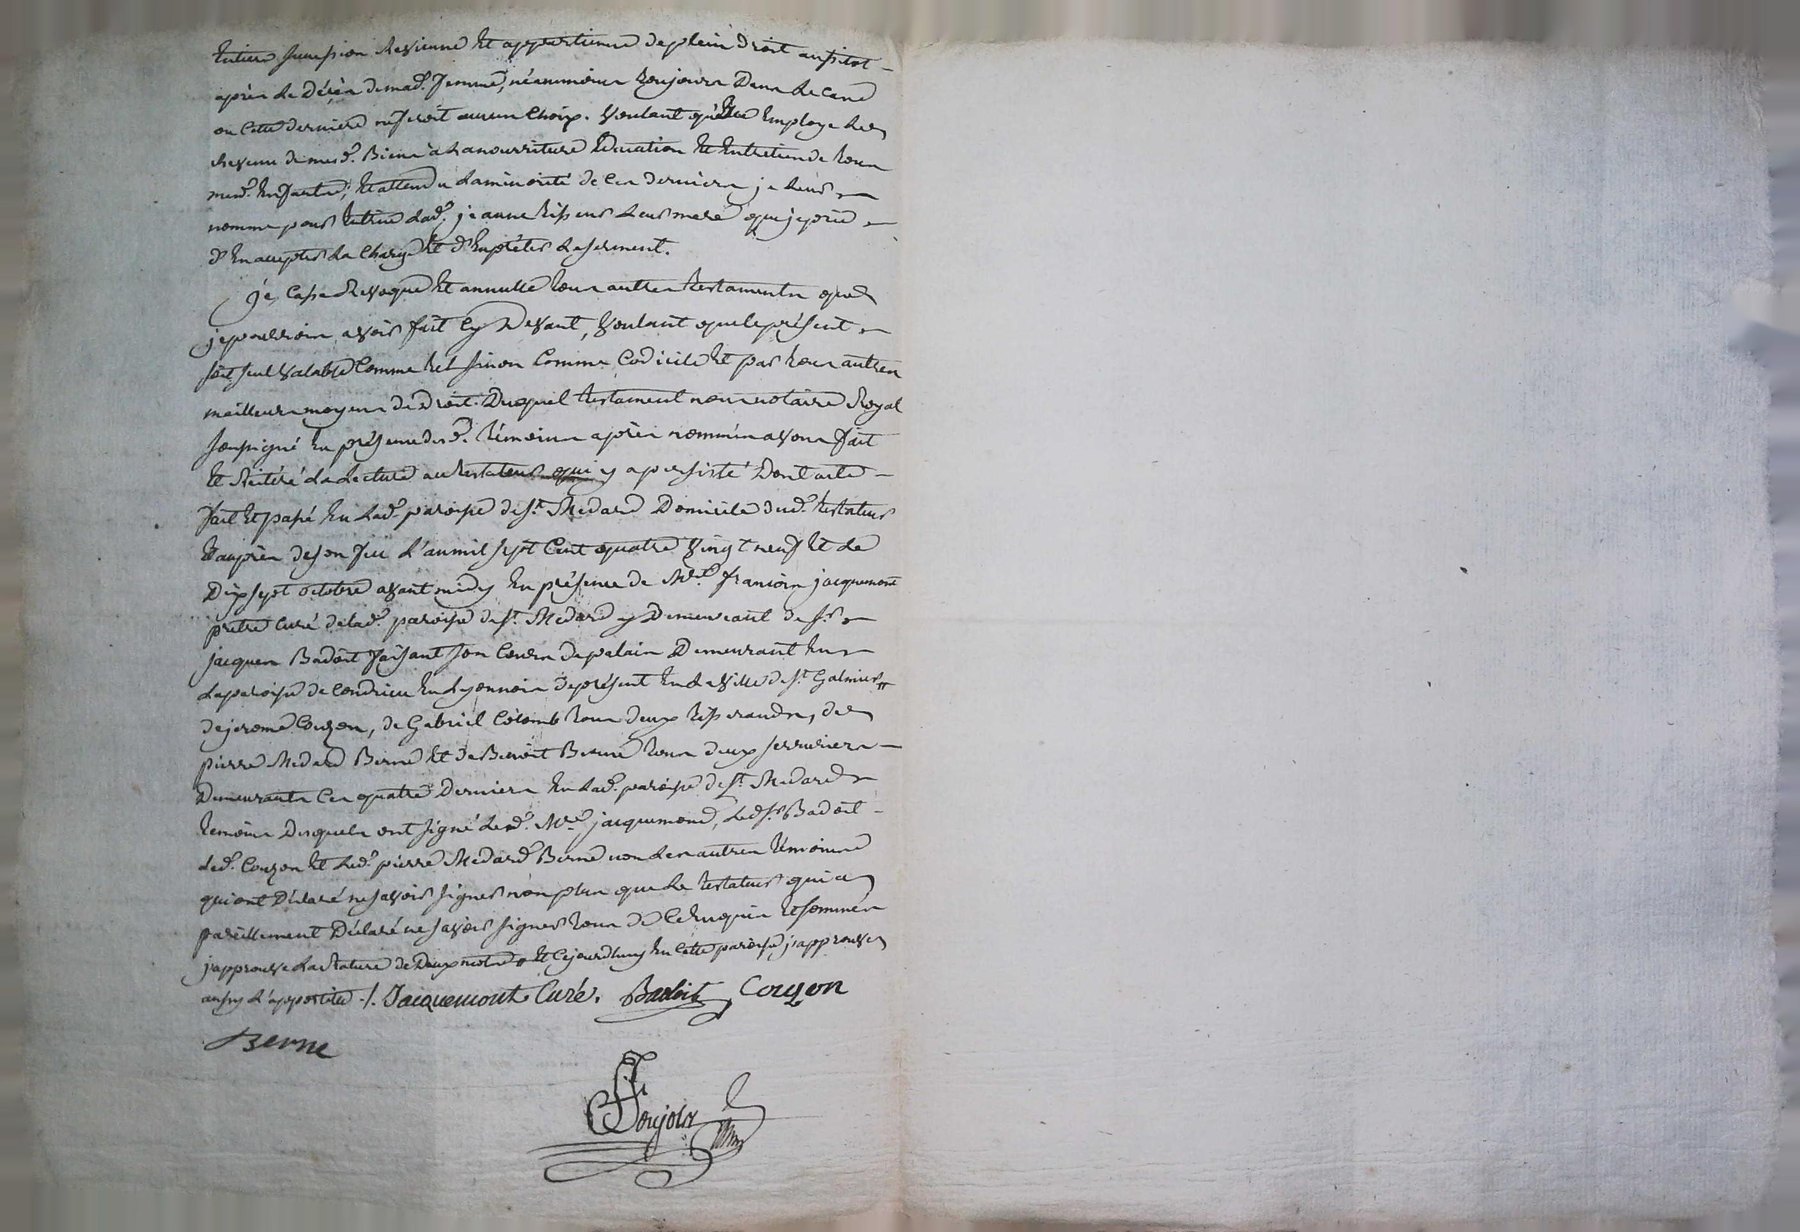 Entiere succession revienne et appartienne de plein droit aussitot
après le décès de mad.e femme, néanmoins toujours dans le cas
ou cette derniere ne feroit aucun choix. voulant qu'elle employe les
revenu de mesd.s Biens a la nourriture Education et Entretien de tous
mesd. Enfants; et attendu la minorité de ces derniers je leurs
nomme pour tutrice lad.e jeanne leur mere que je prie
d'En accepter la charge et d'En prêter le serment.
je casse Revoque et annulle tous autres testaments que
je pourrois avoir fait cy devant, voulant que le présent
soit seul valable comme tel sinon comme codicile et par tous autres
meilleurs moyens de droit. Duquel testament nous notaire Royal
soussigné En présence desd. témoins après nommés avons fait
et réitéré la lecture au testateur qui y a persisté Dont acte
fait et passé En lad.e paroisse de St. Medard Domicile dud. testateur
et auprès de son feu l'an mil sept cent quatre vingt neuf et le
Dix sept octobre avant midy En présence de Mre. francois jacquemont
prêtre curé de lad.e paroisse de St. Medard y Demeurant de Sr.
jacques Badoit faisant son cours de palais Demeurant En
la paroisse de Condrieu En Lyonnois de présent En la ville de St. Galmier
de jerome Couzon, de Gabriel Colomb tous deux tisserands, de
pierre Medard Berne et de Benoit Berne tous deux serruriers
Demeurants ces quatre derniers En lad.e paroisse de St. Medard
temoins desquels ont signé led. Mre. jacquemond, led. Sr. Badoit
led. Couzon et led. pierre Medard Berne non les autres témoins
qui ont déclaré ne savoir signer non plus que le testateur qui a
pareillement Déclaré ne savoir signer tous de ce Enquis et sommés
j'approuve la rature de deux mots et cejourdhuy En cette paroisse j'approuve
aussy l'apostille ./. Jacquemont Curé. Badoit, Couzon
Berne